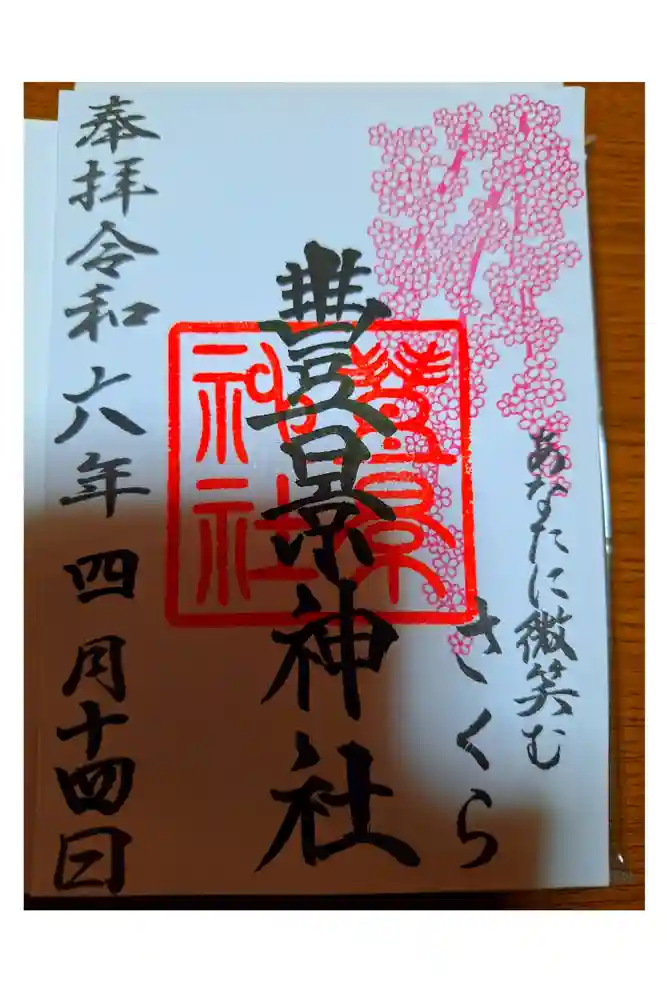 あなたに微笑む
さくら
豊景神社
豊景
神社
奉拝令和六年四月十四日